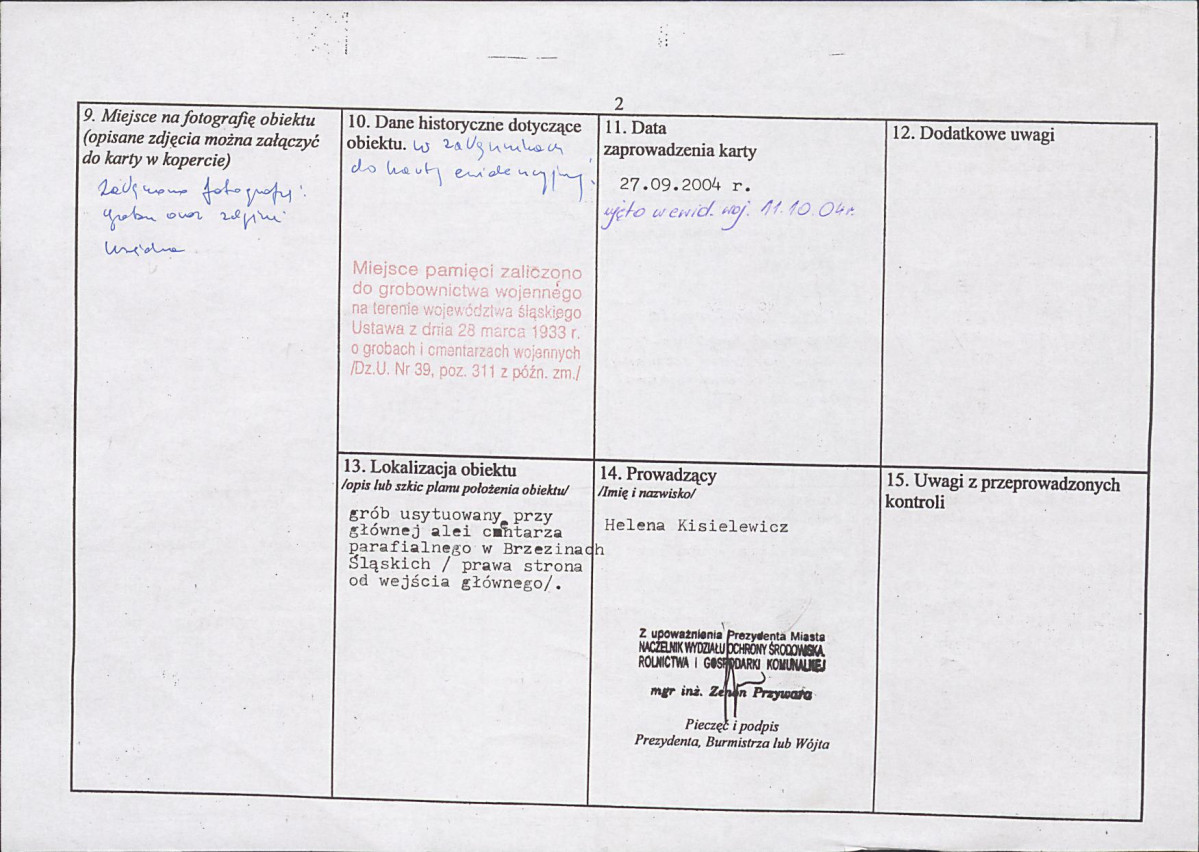 2
9. Miejsce na fotografię obiektu
(opisane zdjęcia można załączyć
do karty w kopercie)
fotografię
grobu oraz zdjęcie
10. Dane historyczne dotyczące
obiektu. w załącznikach
do karty ewidencyjnej.
Miejsce pamięci zaliczono
do grobownictwa wojennego
na terenie województwa śląskiego
Ustawa z dnia 28 marca 1933 r.
o grobach i cmentarzach wojennych
/Dz.U. Nr 39, poz. 311 z późn. zm./
11. Data
zaprowadzenia karty
27.09.2004 r.
ujęto w ewid. woj. 11.10.04r.
12. Dodatkowe uwagi
13. Lokalizacja obiektu
/opis lub szkic planu położenia obiektu/
grób usytuowany przy
głównej alei cmentarza
parafialnego w Brzezinach
Śląskich / prawa strona
od wejścia głównego/.
14. Prowadzący
/Imię i nazwisko/
Helena Kisielewicz
Z upoważnienia Prezydenta Miasta
NACZELNIK WYDZIAŁU OCHRONY ŚRODOWISKA
ROLNICTWA I GOSPODARKI KOMUNALNEJ
mgr inż. Zenon Przywara
Pieczęć i podpis
Prezydenta, Burmistrza lub Wójta
15. Uwagi z przeprowadzonych
kontroli